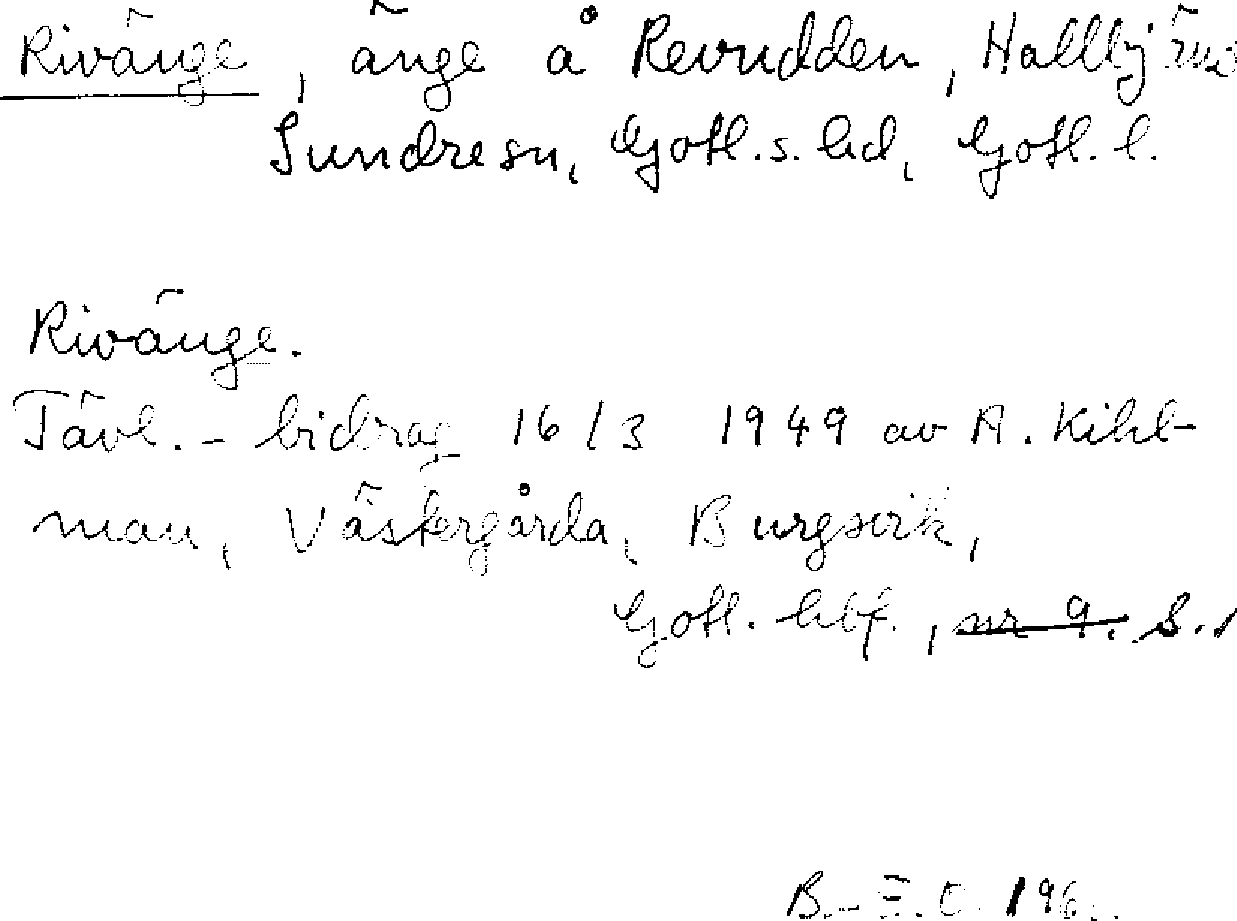 Rivänge, änge å Revudden, Hallbjäns
Sundre sn, Gotl. s. hd, Gotl. l.
Rivänge.
Tävl.-bidrag 16/3 1949 av A. Kihl-
man, Västergårda, Burgsvik,
Gotl. hbf., nr 9. S. 1
B.-E. O. 196